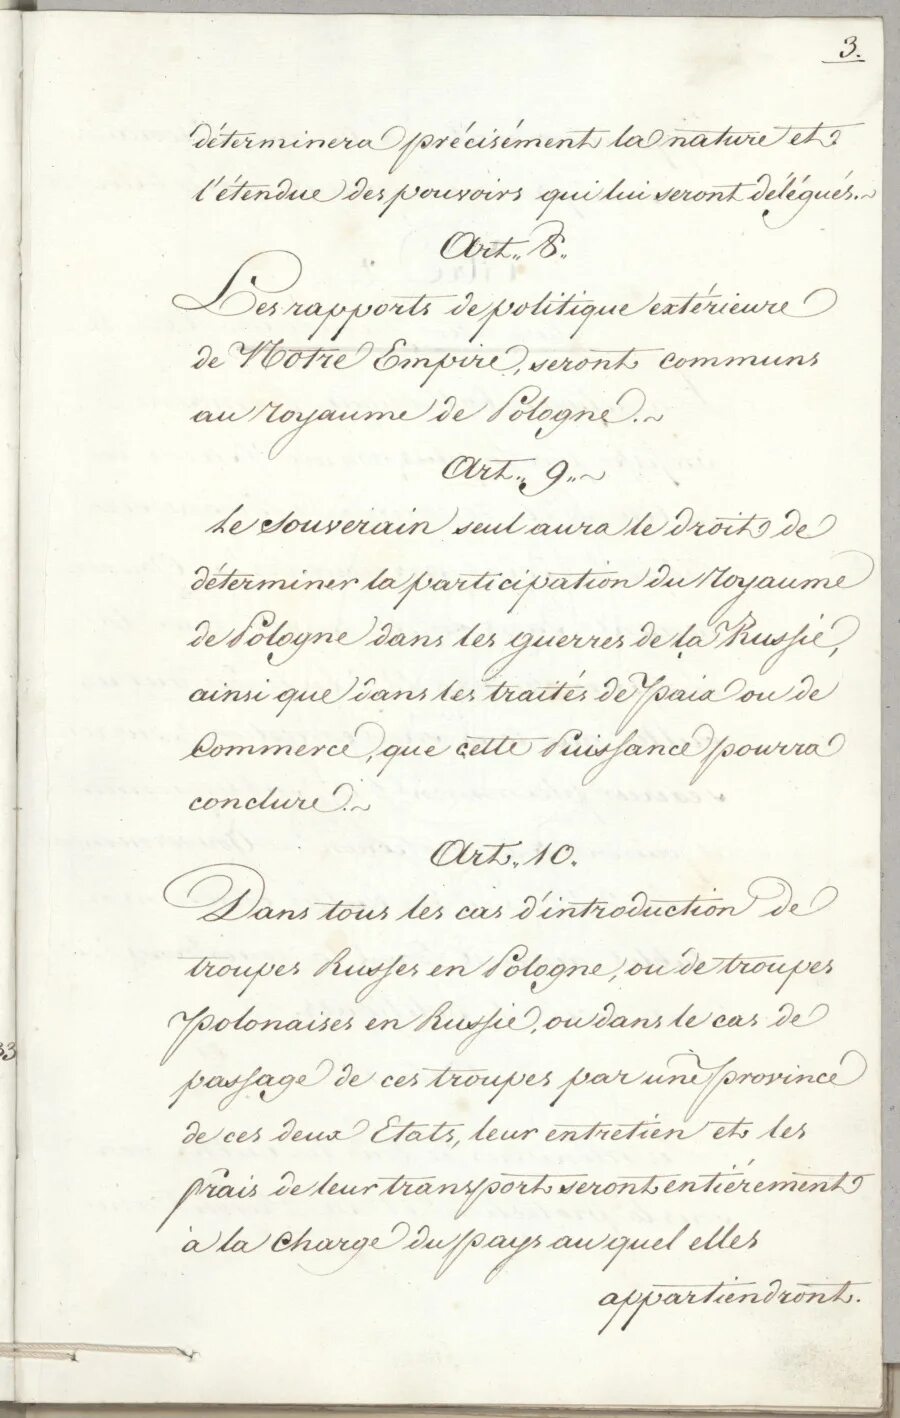 3.
déterminera précisément la nature et
l'étendue des pouvoirs qui lui seront délégués.~
Art. 8.
Les rapports de politique extérieure
de Notre Empire, seront communs
au royaume de Pologne.~
Art. 9.~
Le Souverain seul aura le droit de
déterminer la participation du royaume
de Pologne dans les guerres de la Russie,
ainsi que dans les traités de paix ou de
Commerce, que cette Puissance pourra
conclure.~
Art. 10.
Dans tous les cas d'introduction de
troupes Russes en Pologne, ou de troupes
polonaises en Russie, ou dans le cas de
passage de ces troupes par une province
de ces deux Etats, leur entretien et les
frais de leur transport seront entiérement
à la charge du pays auquel elles
appartiendront.